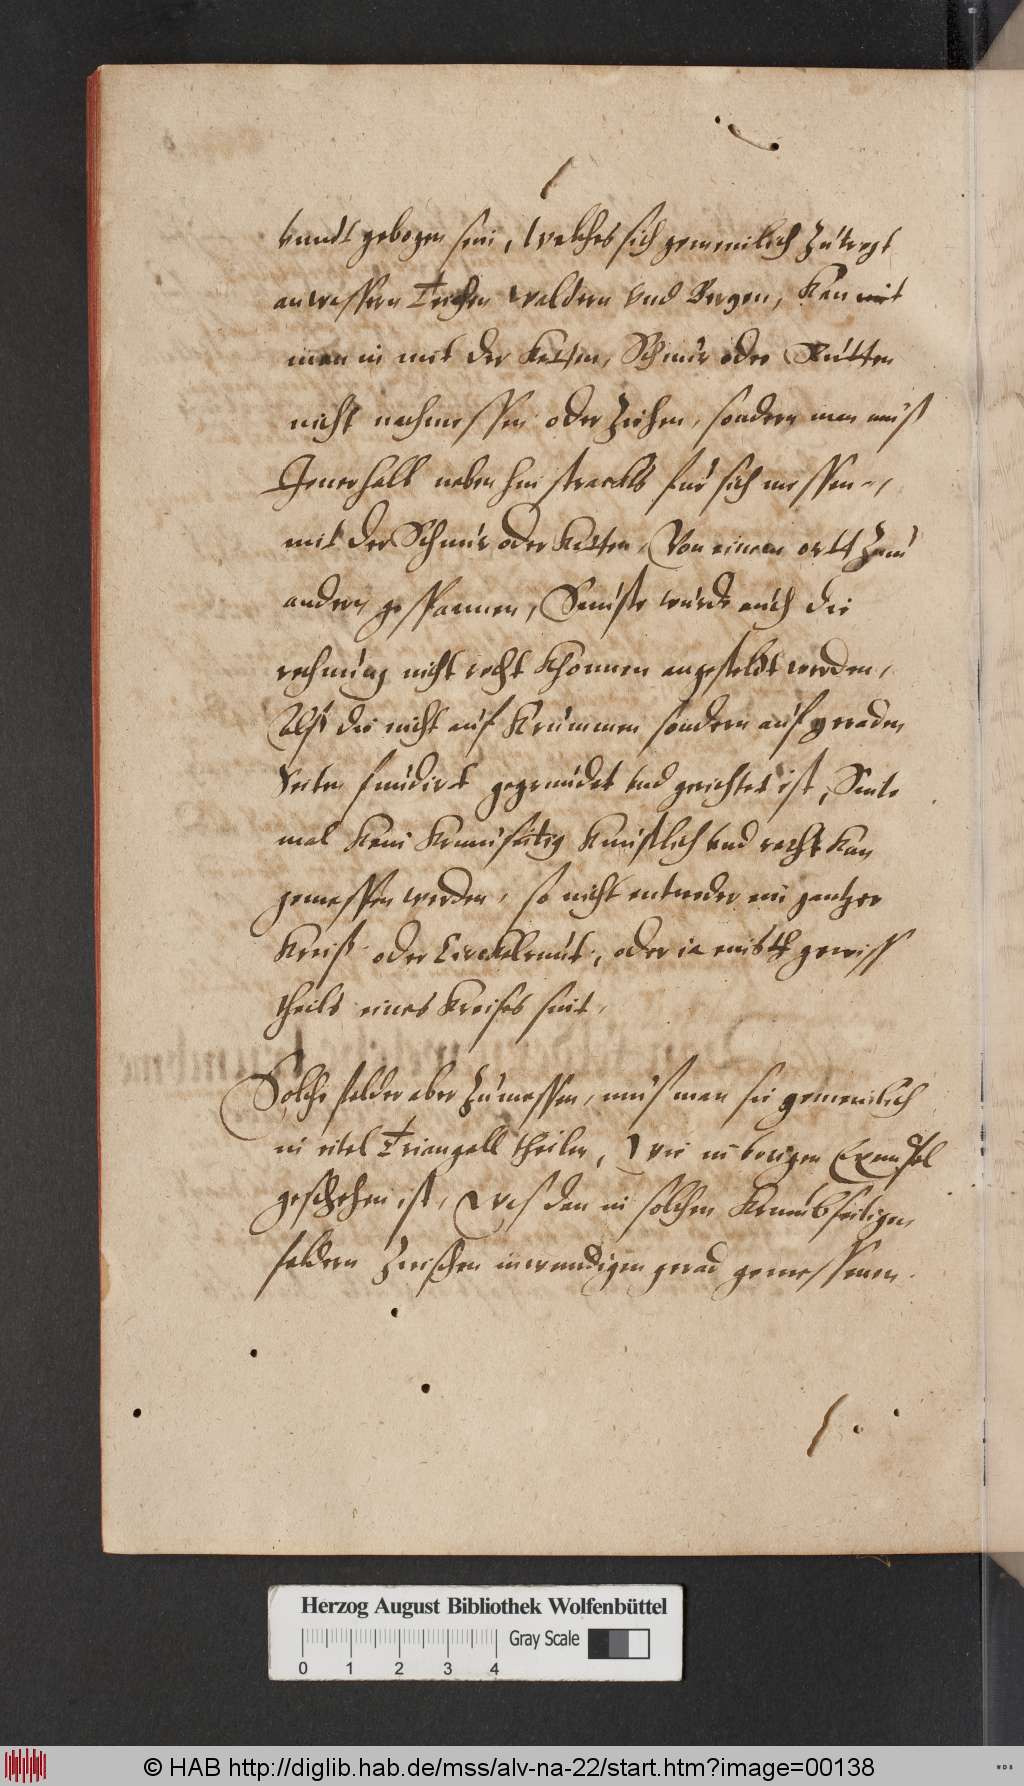 vundt gebogen sein, welches sich gemeinlich zutregt
an wassern Teichen weldern vnd Bergen, Kan mit
man in mit der Ketten, Schnur oder Rutten
nicht nachmessen oder ziehen, sondern man muß
Inerhalb neben hin stracks für sich messen,
mit der Schnur oder Rutten, Von einem ortt zum
andern gespannen, Sunste wurde auch die
rechnung nicht recht khonnen angesteldt werden,
Alß die nicht auf Krummen sondern auf geraden
Seiten fundirt gegrundet vnd gerichtet ist, Sinte
mal kein Krumseitig kunstlich vnd recht kan
gemessen werden, so nicht entweder ein gantzer
Kreiß oder Circkelrunt, oder ie eines gewiss
theils eines Kreises seint,
Solche felder aber zu messen, muß man sie gemeinlich
in eitel Triangell theilen, Wie in vorigen Exempel
geschehen ist, Was dan in solchen Krumbseitigen
feldern zwischen inwendigen gerad gemessenen
Herzog August Bibliothek Wolfenbüttel
Gray Scale
0 1 2 3 4
© HAB http://diglib.hab.de/mss/alv-na-22/start.htm?image=00138